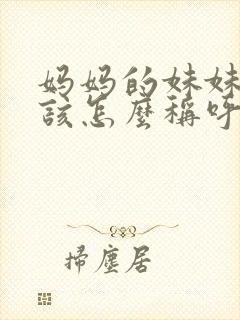 妈妈的妹妹
該怎麼稱呼
掃塵居